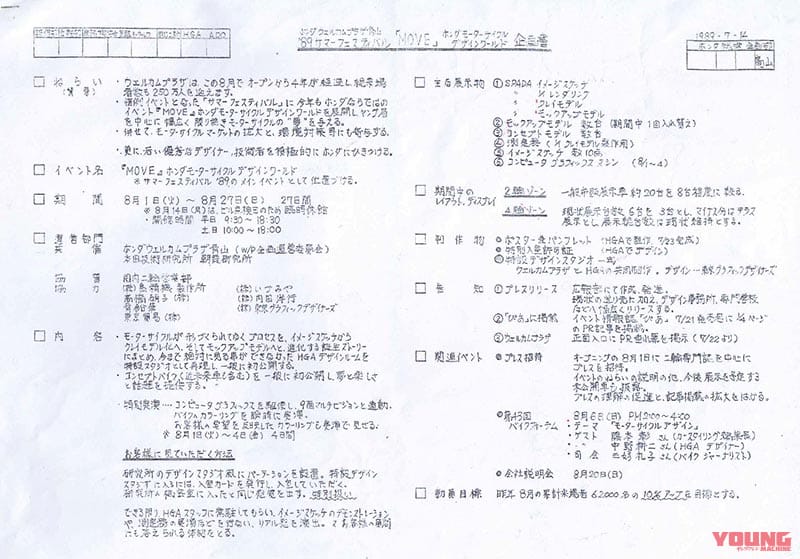 ホンダウェルカムプラザ青山
'89サマーフェスティバル
『MOVE』
ホンダモーターサイクル
デザインワールド
企画書
1989-7-14
HGA
青山
□ ねらい
(背景)
・ウェルカムプラザは、この8月でオープンから4年が経過し、総来場
者数も250万人を迎えます。
・恒例イベントとなった「サマーフェスティバル」に今年もホンダならではの
イベント『MOVE』ホンダモーターサイクルデザインワールドを展開しヤング層
を中心に幅広く
・併せて、モーターサイクルマーケットの拡大と、
・更に、若い優秀なデザイナー、技術者を積極的にホンダにひきつける。
□ イベント名
『MOVE』ホンダモーターサイクルデザインワールド
※サマーフェスティバル'89のメインイベントとして位置づける。
□ 期間
8月1日(火) 〜 8月27日(日) 27日間
※8月14日(月)は、ビル点検のため臨時休館
・開館時間 平日 9:30〜18:30
土日 10:00〜18:00
□ 運営部門
主催
ホンダウェルカムプラザ青山 (W/P企画運営委員会)
本田技術研究所 朝霞研究所
協賛
国内二輪営業部
協力
(株)いづみや
(株)内田洋行
(株)東京グラフィックデザイナーズ
□ 内容
・モーターサイクルが形づくられてゆくプロセスを、イメージスケッチから
クレイモデル化へ、そしてモックアップモデルへと、進化する誕生ストーリー
にまとめ、今まで絶対に見る事ができなかったHGAデザインルームを
特設スタジオとして再現し、一般に初公開する。
・コンセプトバイク(近未来車も含む)を一般に初公開し夢と楽しさ
と話題を提供する。
・特別実演‥‥コンピュータグラフィックスを駆使し、9面マルチビジョンと連動。
バイクのカラーリングを瞬時に表現。
お客様の希望を反映したカラーリングも実演で見せる。
※8月1日(火)〜4日(金) 4日間
お客様に見ていただく方法
研究所のデザインスタジオ風にパーテーションを設置。特設デザイン
スタジオに入るには、入室カードを発行し、入室していただく。
特別扱い
できる限り、HGAスタッフに常駐してもらい、イメージスケッチのデモンストレーション
や、測定器の実演などを行ない、リアル感を演出。又お客様の質問
にも答えられる体制をとる。
□ 主な展示物
① SPADA イメージスケッチ
〃 レンダリング
〃 クレイモデル
〃 モックアップモデル
② モックアップモデル 数台 (期間中1回入れ替え)
③ コンセプトモデル 数台
④ 測定器 (クレイモデル製作用)
⑤ イメージスケッチ 数10点
⑥ コンピュータグラフィックスマシン (8/1〜4)
□ 期間中の
レイアウト、ディスプレイ
2輪ゾーン
一般市販展示車 約20台を8台程度に絞る。
4輪ゾーン
現状展示台数 6台を 3台とし、マイナス分はテラス
展示とし、展示総台数は現状維持とする。
□ 制作物
① ポスター兼パンフレット (HGAで製作、7/23完成)
② 特別入室許可証 (HGAでデザイン)
③ 特設デザインスタジオ一式
ウェルカムプラザとHGAの共同制作、デザイン…東京グラフィックデザイナーズ
□ 告知
① プレスリリース
広報室にて作成、発送。
デザイン事務所、専門学校
などへ幅広くリリースする。
② 「ぴあ」に掲載
イベント情報誌「ぴあ」7/21発売号に1/4ページ
のPR記事を掲載。
③ ウェルカムプラザ
正面入口にPR垂れ幕を掲示 (7/22より)
□ 関連イベント
① プレス招待
オープニングの8月1日に二輪専門誌を中心に
プレスを招待。
イベントのねらいの説明の他、今後展示を予定する
未公開車も披露。
プレスの理解の促進と、記事掲載の拡大をはかる。
② 第43回
バイクフォーラム
8月6日(日) PM2:00〜4:00
・テーマ 「モーターサイクルデザイン」
・ゲスト
(HGAデザイナー)
・司会 三好礼子さん (バイクジャーナリスト)
③ 会社説明会
8月20日(日)
□ 動員目標
昨年8月の累計来場者 62000名の10%アップを目標とする。
YOUNG
MACHINE